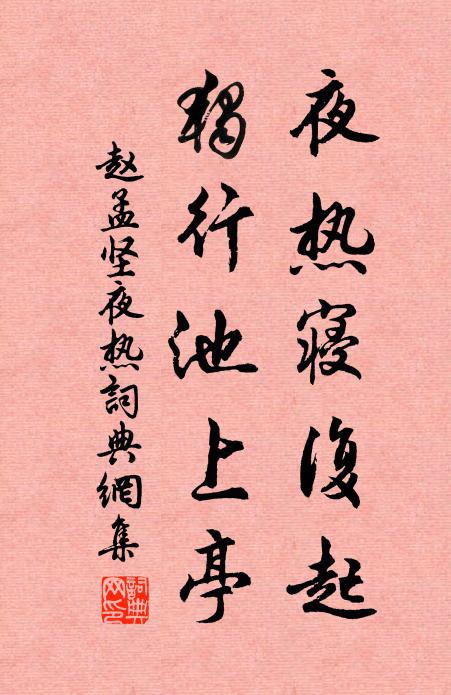 夜热寝復起
獨行池上亭
赵孟坚夜热詞典網集
詞典网印